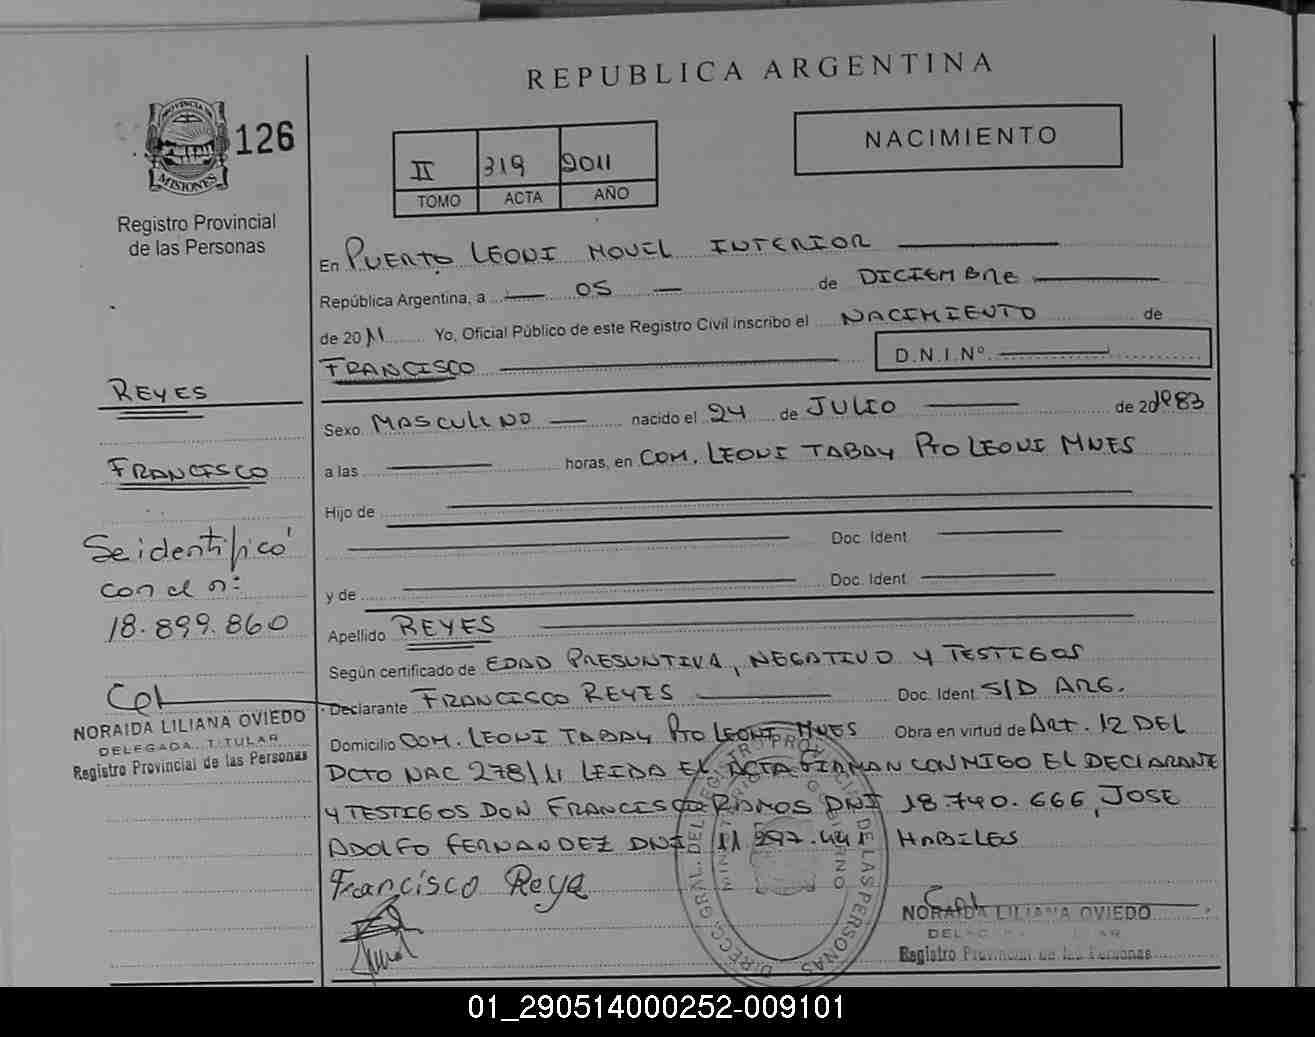 REPUBLICA ARGENTINA
PROVINCIA DE
MISIONES
126
Registro Provincial
de las Personas
II 319 2011
TOMO ACTA AÑO
NACIMIENTO
En PUERTO LEONI MOVIL INTERIOR
República Argentina, a 05 de DICIEMBRE
de 2011 Yo, Oficial Público de este Registro Civil inscribo el NACIMIENTO de
FRANCISCO D.N.I.Nº
REYES
Sexo MASCULINO nacido el 24 de JULIO de 201983
a las horas, en COM. LEONI TABAY PTO LEONI MNES
FRANCISCO
Hijo de
Doc. Ident
Se identificó
con el nº:
18.899.860
y de Doc. Ident
Apellido REYES
Según certificado de EDAD PRESUNTIVA, NEGATIVO Y TESTIGOS
Declarante FRANCISCO REYES Doc. Ident S/D ARG.
NORAIDA LILIANA OVIEDO
DELEGADA TITULAR
Registro Provincial de las Personas
Domicilio COM. LEONI TABAY PTO LEONI MNES Obra en virtud de ART. 12 DEL
DCTO NAC 278/11 LEIDA EL ACTA FIRMAN CONMIGO EL DECLARANTE
Y TESTIGOS DON FRANCISCO RAMOS DNI 18.740.666, JOSE
ADOLFO FERNANDEZ DNI 11.297.441 HABILES
Francisco Reye
DIREC. GRAL. DEL REGISTRO PROVINCIAL DE LAS PERSONAS
MINISTERIO GOBIERNO
NORAIDA LILIANA OVIEDO
Registro Provincial de las Personas
01_290514000252-009101